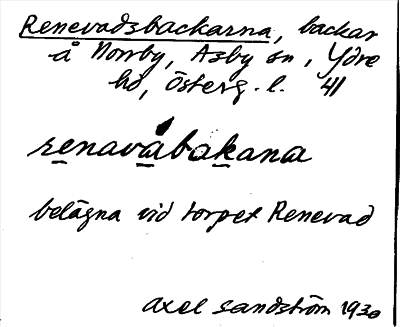 Renevadsbackarna, backar
å Norrby, Asby sn, Ydre
hd, Österg. l. 41
renavabakana
belägna vid torpet Renevad
Axel Sandström 1930